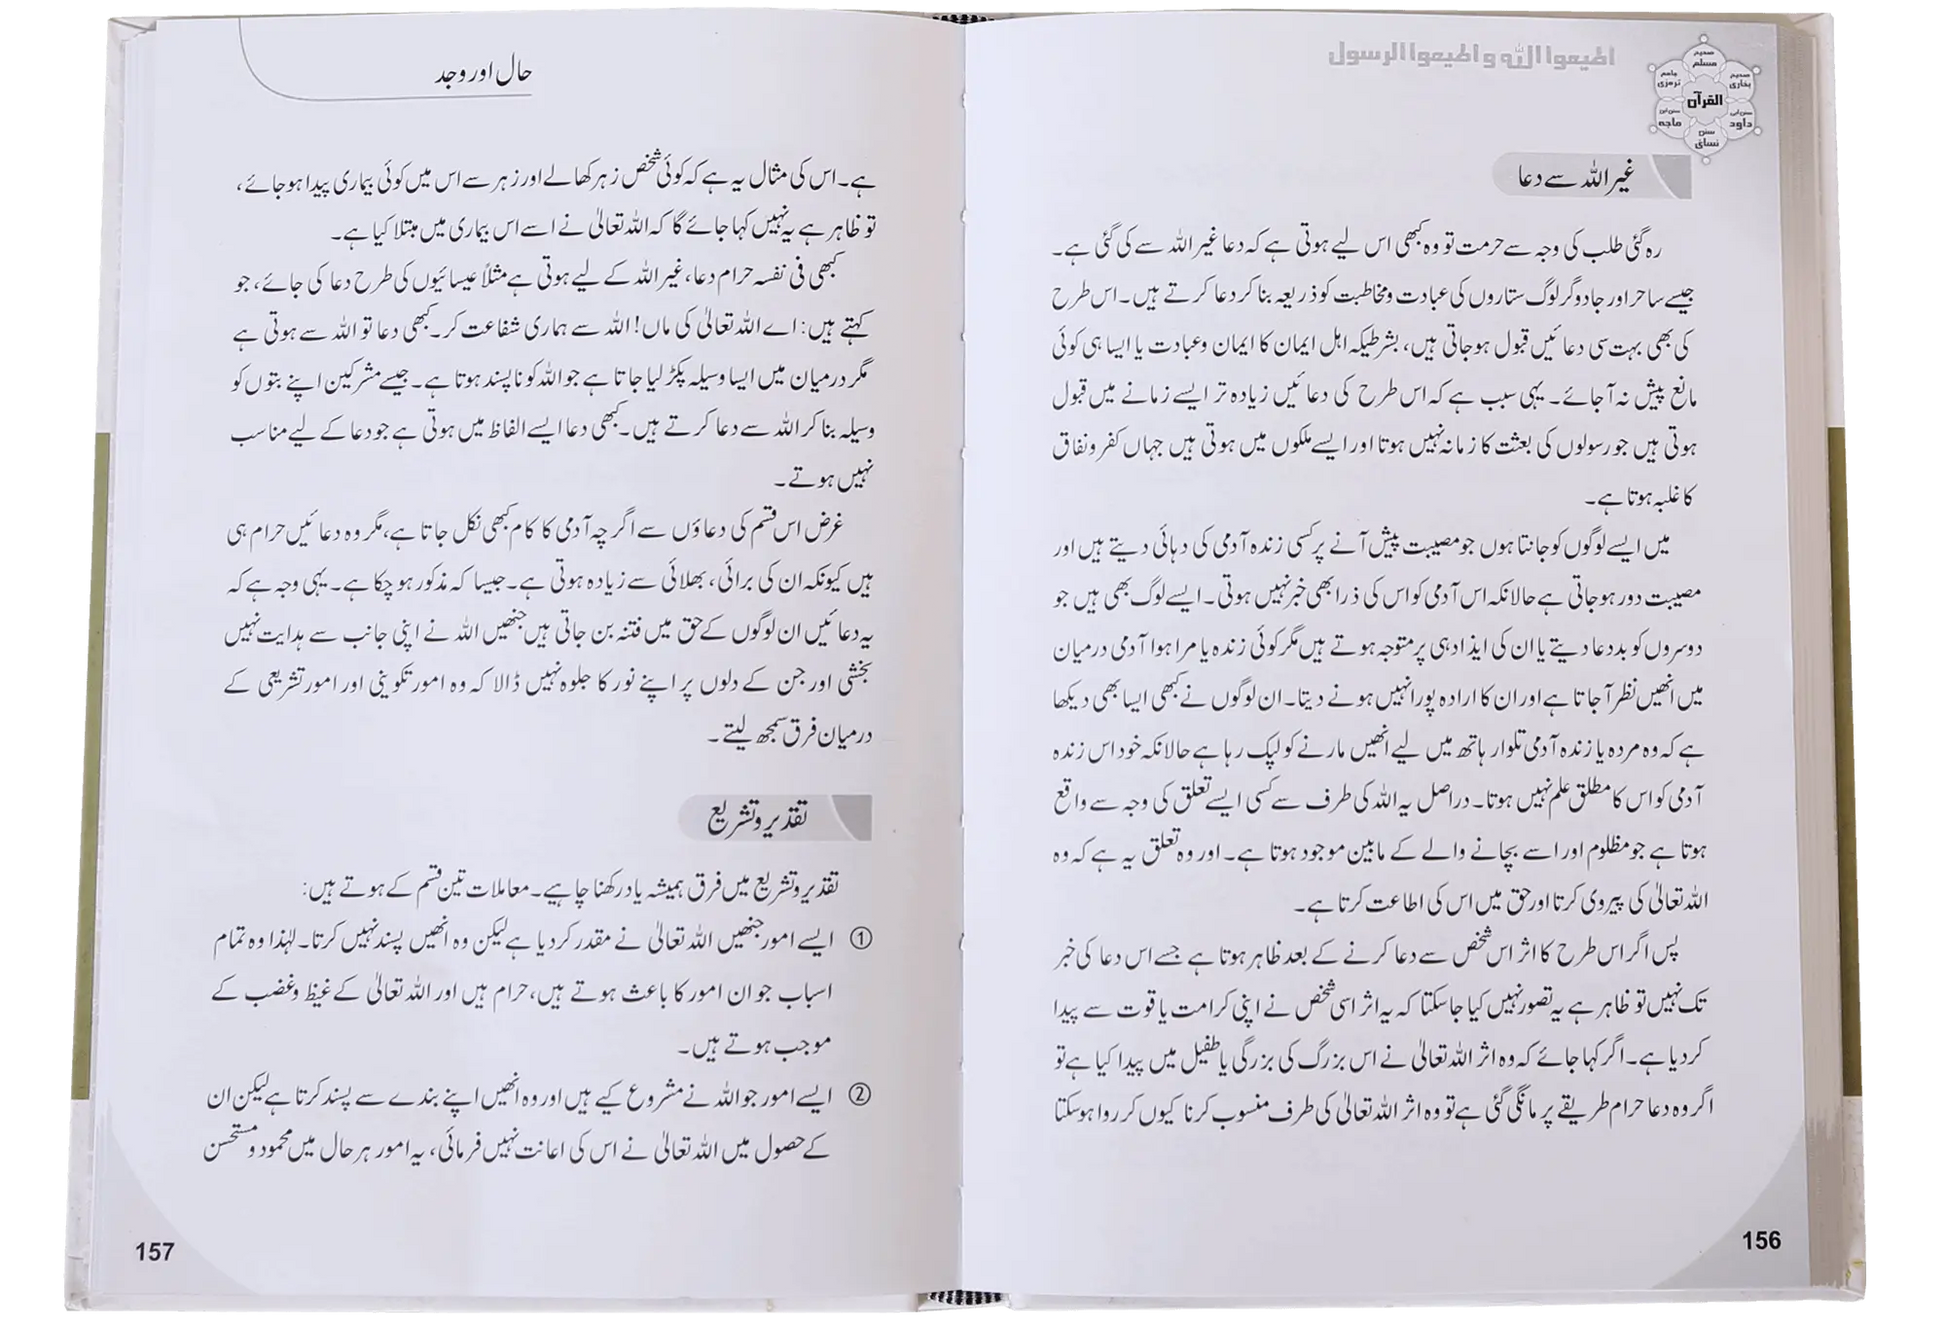 اطیعوا اللہ و اطیعوا الرسول
صحیح مسلم
صحیح بخاری
جامع ترمذی
القرآن
سنن ابی داود
سنن ابن ماجہ
سنن نسائی
غیر اللہ سے دعا
رہ گئی طلب کی وجہ سے حرمت تو وہ کبھی اس لیے ہوتی ہے کہ دعا غیر اللہ سے کی گئی ہے۔
جیسے ساحر اور جادوگر لوگ ستاروں کی عبادت و مخاطبت کو ذریعہ بنا کر دعا کرتے ہیں۔ اس طرح
کی بھی بہت سی دعائیں قبول ہو جاتی ہیں، بشرطیکہ اہل ایمان کا ایمان و عبادت یا ایسا ہی کوئی
مانع پیش نہ آ جائے۔ یہی سبب ہے کہ اس طرح کی دعائیں زیادہ تر ایسے زمانے میں قبول
ہوتی ہیں جو رسولوں کی بعثت کا زمانہ نہیں ہوتا اور ایسے ملکوں میں ہوتی ہیں جہاں کفر و نفاق
کا غلبہ ہوتا ہے۔
میں ایسے لوگوں کو جانتا ہوں جو مصیبت پیش آنے پر کسی زندہ آدمی کی دہائی دیتے ہیں اور
مصیبت دور ہو جاتی ہے حالانکہ اس آدمی کو اس کی ذرا بھی خبر نہیں ہوتی۔ ایسے لوگ بھی ہیں جو
دوسروں کو بددعا دیتے یا ان کی ایذا دہی پر متوجہ ہوتے ہیں مگر کوئی زندہ یا مرا ہوا آدمی درمیان
میں انھیں نظر آ جاتا ہے اور ان کا ارادہ پورا نہیں ہونے دیتا۔ ان لوگوں نے کبھی ایسا بھی دیکھا
ہے کہ وہ مردہ یا زندہ آدمی تلوار ہاتھ میں لیے انھیں مارنے کو لپک رہا ہے حالانکہ خود اس زندہ
آدمی کو اس کا مطلق علم نہیں ہوتا۔ دراصل یہ اللہ کی طرف سے کسی ایسے تعلق کی وجہ سے واقع
ہوتا ہے جو مظلوم اور اسے بچانے والے کے مابین موجود ہوتا ہے۔ اور وہ تعلق یہ ہے کہ وہ
اللہ تعالیٰ کی پیروی کرتا اور حق میں اس کی اطاعت کرتا ہے۔
پس اگر اس طرح کا اثر اس شخص سے دعا کرنے کے بعد ظاہر ہوتا ہے جسے اس دعا کی خبر
تک نہیں تو ظاہر ہے یہ تصور نہیں کیا جا سکتا کہ یہ اثر اسی شخص نے اپنی کرامت یا قوت سے پیدا
کر دیا ہے۔ اگر کہا جائے کہ وہ اثر اللہ تعالیٰ نے اس بزرگ کی بزرگی یا طفیل میں پیدا کیا ہے تو
اگر وہ دعا حرام طریقے پر مانگی گئی ہے تو وہ اثر اللہ تعالیٰ کی طرف منسوب کرنا کیوں کر روا ہو سکتا
156
حال اور وجد
ہے۔ اس کی مثال یہ ہے کہ کوئی شخص زہر کھا لے اور زہر سے اس میں کوئی بیماری پیدا ہو جائے،
تو ظاہر ہے یہ نہیں کہا جائے گا کہ اللہ تعالیٰ نے اسے اس بیماری میں مبتلا کیا ہے۔
کبھی فی نفسہ حرام دعا، غیر اللہ کے لیے ہوتی ہے مثلاً عیسائیوں کی طرح دعا کی جائے، جو
کہتے ہیں: اے اللہ تعالیٰ کی ماں! اللہ سے ہماری شفاعت کر۔ کبھی دعا تو اللہ سے ہوتی ہے
مگر درمیان میں ایسا وسیلہ پکڑ لیا جاتا ہے جو اللہ کو ناپسند ہوتا ہے۔ جیسے مشرکین اپنے بتوں کو
وسیلہ بنا کر اللہ سے دعا کرتے ہیں۔ کبھی دعا ایسے الفاظ میں ہوتی ہے جو دعا کے لیے مناسب
نہیں ہوتے۔
غرض اس قسم کی دعاؤں سے اگرچہ آدمی کا کام کبھی نکل جاتا ہے، مگر وہ دعائیں حرام ہی
ہیں کیونکہ ان کی برائی، بھلائی سے زیادہ ہوتی ہے۔ جیسا کہ مذکور ہو چکا ہے۔ یہی وجہ ہے کہ
یہ دعائیں ان لوگوں کے حق میں فتنہ بن جاتی ہیں جنھیں اللہ نے اپنی جانب سے ہدایت نہیں
بخشی اور جن کے دلوں پر اپنے نور کا جلوہ نہیں ڈالا کہ وہ امور تکوینی اور امور تشریعی کے
درمیان فرق سمجھ لیتے۔
تقدیر و تشریع
تقدیر و تشریع میں فرق ہمیشہ یاد رکھنا چاہیے۔ معاملات تین قسم کے ہوتے ہیں:
① ایسے امور جنھیں اللہ تعالیٰ نے مقدر کر دیا ہے لیکن وہ انھیں پسند نہیں کرتا۔ لہٰذا وہ تمام
اسباب جو ان امور کا باعث ہوتے ہیں، حرام ہیں اور اللہ تعالیٰ کے غیظ و غضب کے
موجب ہوتے ہیں۔
② ایسے امور جو اللہ نے مشروع کیے ہیں اور وہ انھیں اپنے بندے سے پسند کرتا ہے لیکن ان
کے حصول میں اللہ تعالیٰ نے اس کی اعانت نہیں فرمائی، یہ امور ہر حال میں محمود و مستحسن
157